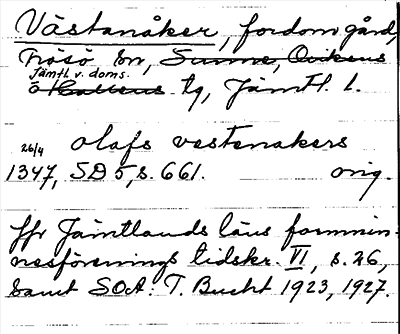 Västanåker, fordom gård,
Frösö sn, Sunne, Ovikens
Jämtl. v. doms.
o Hallens tg, Jämtl. l.
26/4 olafs vestenakers
1347, SD 5, s. 661. orig.
Jfr Jämtlands läns fornmin-
nesförenings tidskr. VI, s. 26,
samt SOA: T. Bucht 1923, 1927.